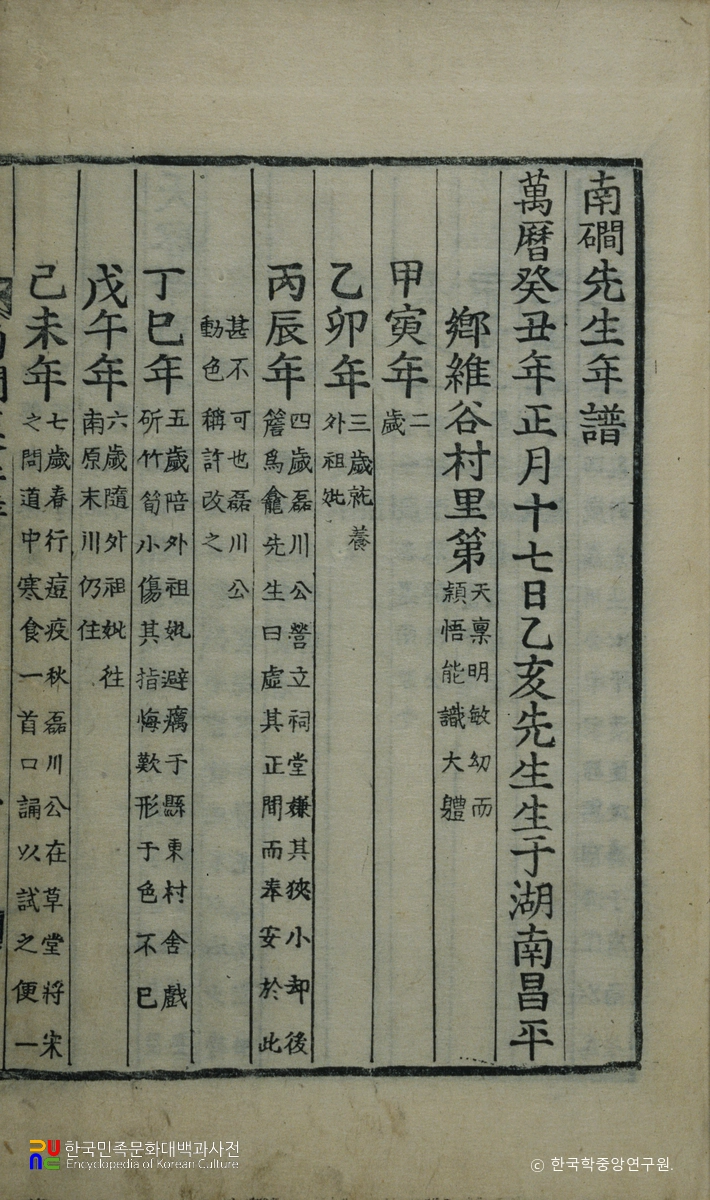 南磵先生年譜
萬曆癸丑年正月十七日乙亥先生生于湖南昌平
鄕維谷村里第 天稟明敏幼而
穎悟能識大體
甲寅年 二
歲
乙卯年 三歲就養
外祖妣
丙辰年 四歲磊川公營立祠堂嫌其狹小却後
簷爲龕先生曰虛其正間而奉安於此
甚不可也磊川公
動色稱許改之
丁巳年 五歲陪外祖妣避癘于縣東村舍戲
斫竹筍小傷其指悔歎形于色不已
戊午年 六歲隨外祖妣往
南原末川仍住
己未年 七歲春行痘疫秋磊川公在草堂將宋
之問道中寒食一首口誦以試之便一
한국민족문화대백과사전
Encyclopedia of Korean Culture
© 한국학중앙연구원.